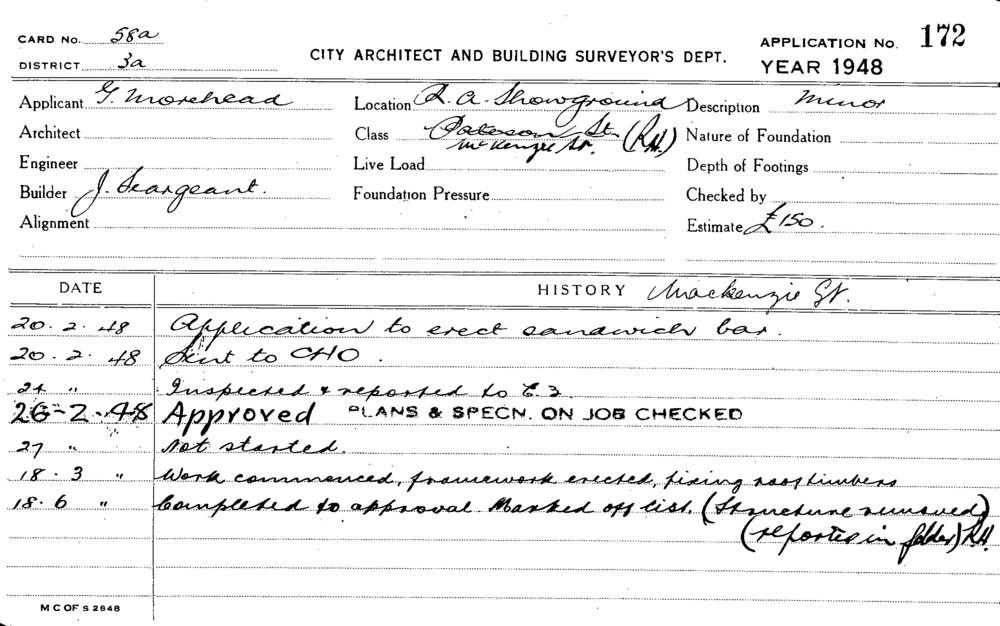 CARD No. 58a
DISTRICT 3a
CITY ARCHITECT AND BUILDING SURVEYOR'S DEPT.
APPLICATION No. 172
YEAR 1948
Applicant G. Morehead
Location R. A. Showground
Description Minor
Architect
Class Paterson St. (R.H.)
McKenzie St.
Nature of Foundation
Engineer
Live Load
Depth of Footings
Builder J. Seargeant.
Foundation Pressure
Checked by
Alignment
Estimate £150.
DATE
HISTORY Mackenzie St.
20.2.48 Application to erect sandwich bar.
20.2.48 Sent to CHO.
24 " Inspected & reported to C.3
26-2-48 Approved PLANS & SPECN. ON JOB CHECKED
27 " Not started.
18.3 " Work commenced, framework erected, fixing roof timbers
18.6 " Completed to approval. Marked off list. (Structure removed)
(reported in folder) R.H.
M C OF S 2848